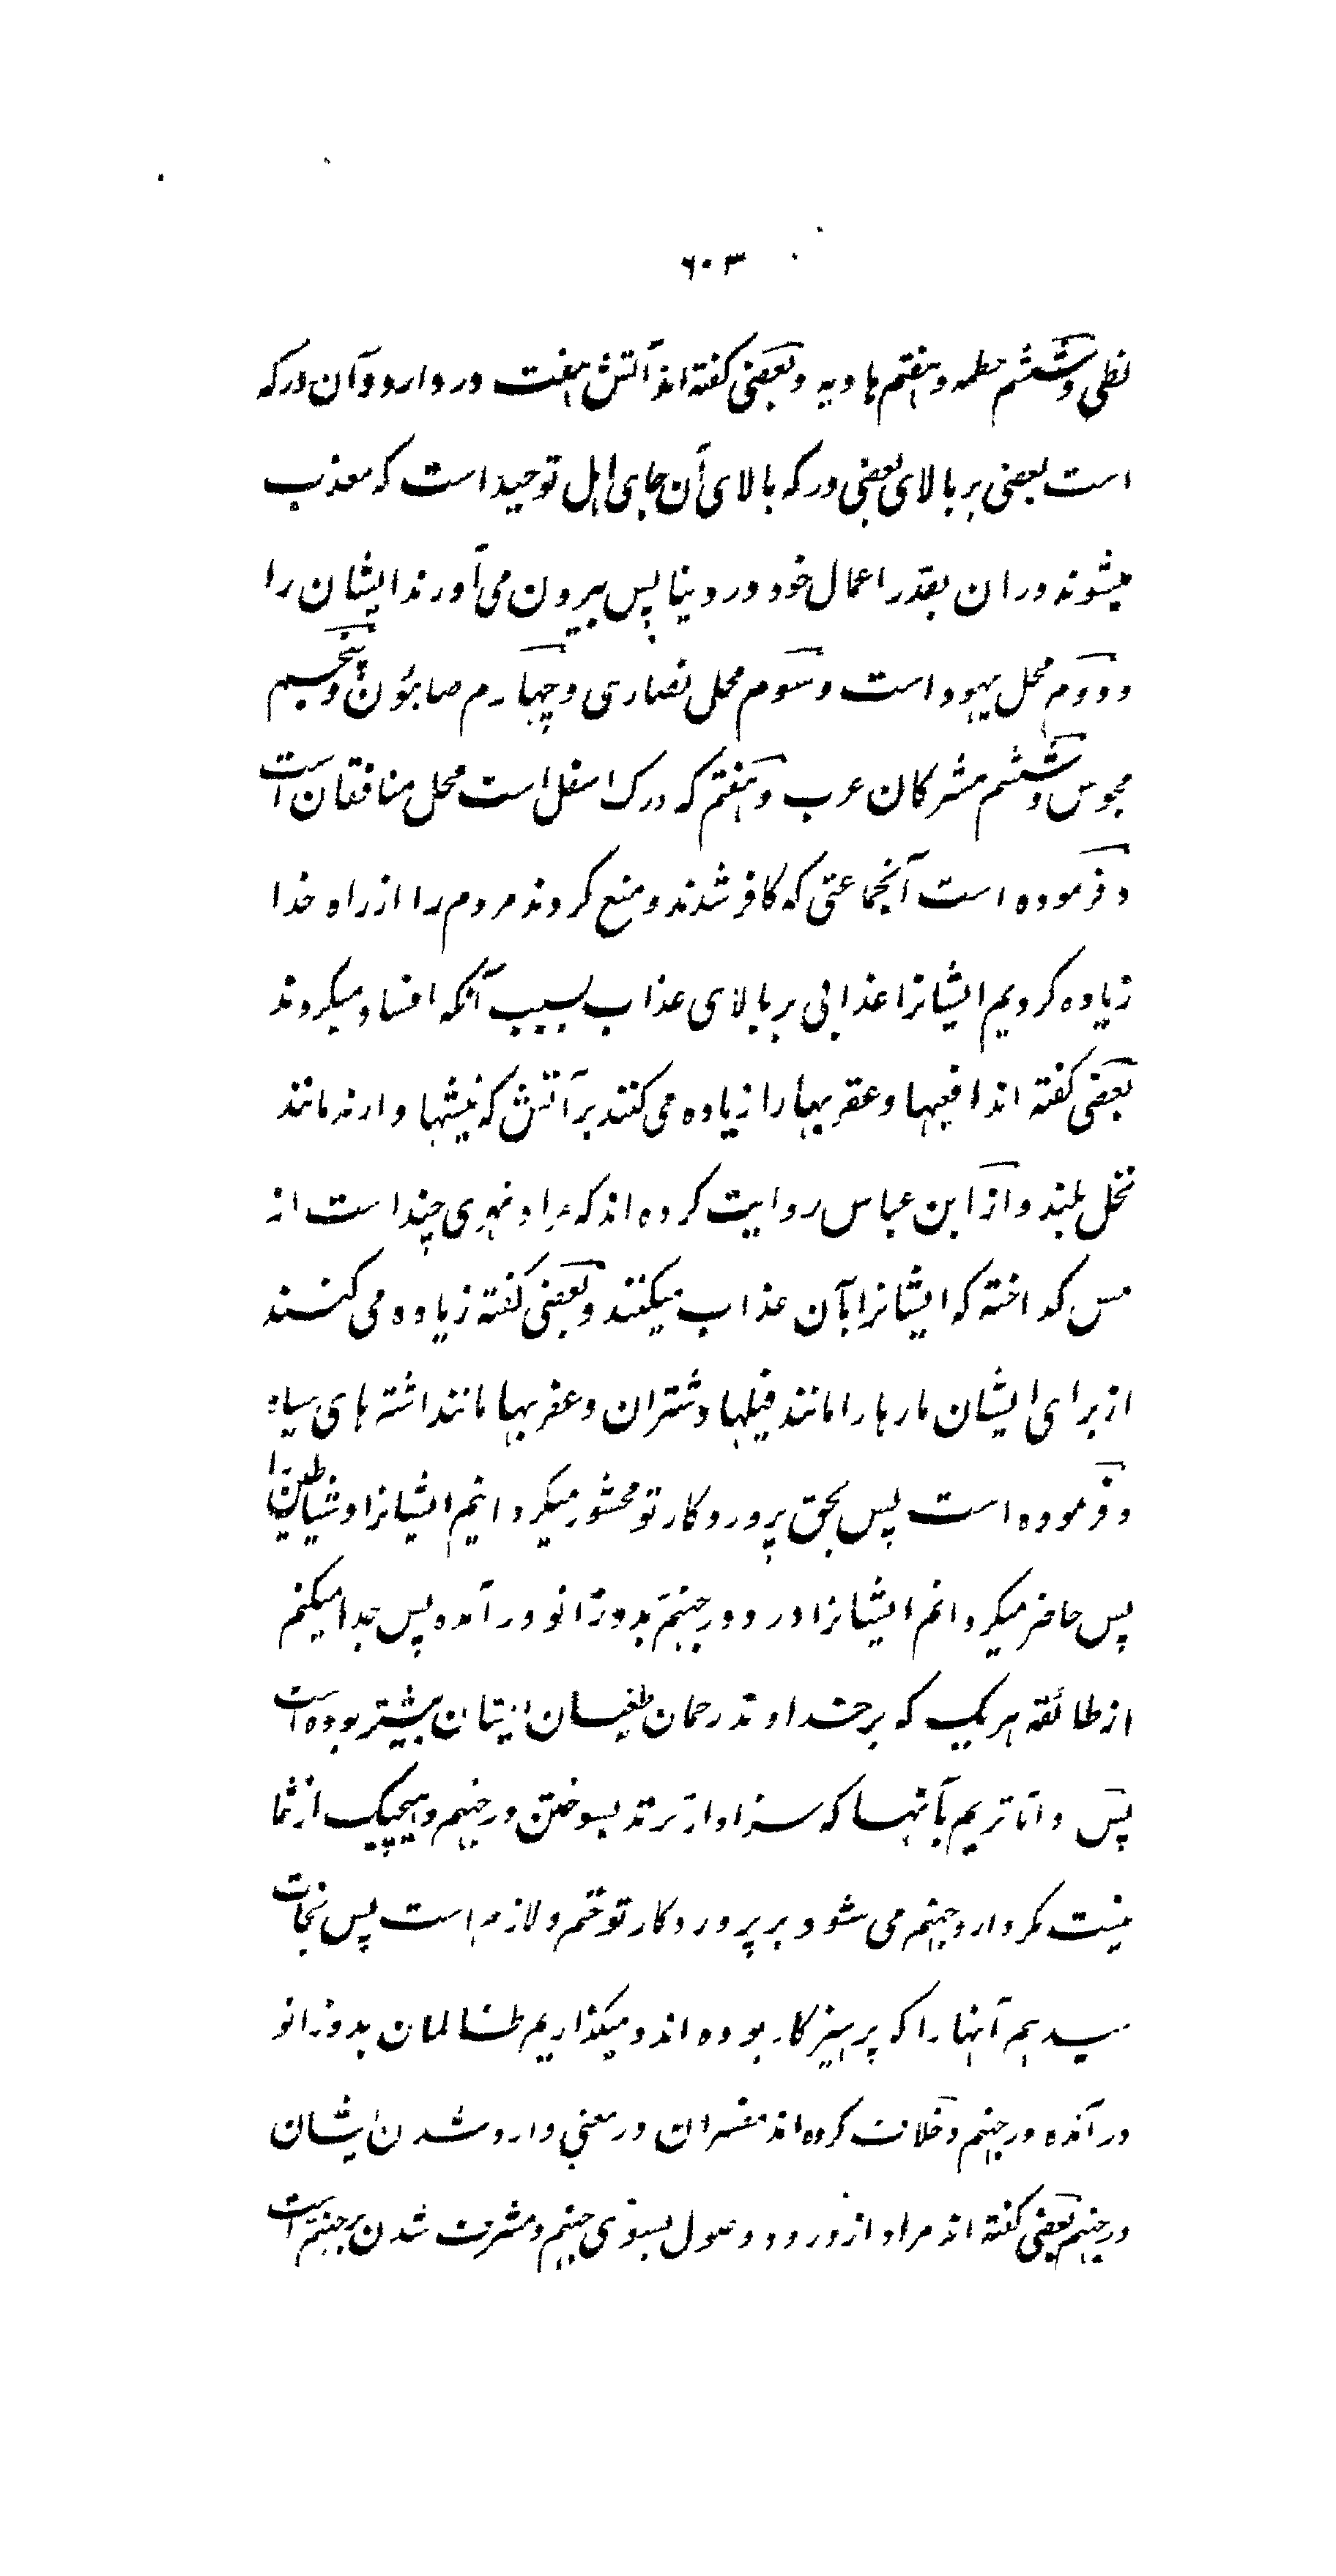 ٦٠٣
لظی و ششم حطمه و هفتم هاویه و بعضی گفته‌اند آتش هفت در دارد و آن درکه
است بعضی بر بالای بعضی درکه بالای آن جای اهل توحید است که معذب
میشوند در ان بقدر اعمال خود در دینا پس بیرون می آورند ایشان را
و دوم محل یهود است و سوم محل نصاری و چهارم صابئون و پنجم
مجوس و ششم مشرکان عرب و هفتم که درک اسفل است محل منافقان است
و فرموده است آنجماعتی که کافر شدند و منع کردند مردم را از راه خدا
زیاده کردیم ایشانرا عذابی بر بالای عذاب بسبب آنکه افساد میکردند
بعضی گفته اند افعیها و عقربها را زیاده می کنند بر آتش که نیشها دارند مانند
نخل بلند و از ابن عباس روایت کرده اند که مراد نهری چند است از
مس گداخته که ایشانرا بآن عذاب میکنند و بعضی گفته زیاده می کنند
از برای ایشان مارها را مانند فیلها و شتران و عقربها مانند اشترهای سیاه
و فرموده است پس بحق پروردگار تو محشور میگردانیم ایشانرا و شیاطین را
پس حاضر میگردانم ایشانرا در دور جهنم بدو زانو در آمده پس جدا میکنم
از طائفه هر یک که بر خداوند رحمان طغیان ایشان بیشتر بوده است
پس داناتریم بآنها که سزاوارترند بسوختن در جهنم و هیچیک از شما
نیست مگر وارد جهنم می شود بر پروردگار تو حتم و لازم است پس نجات
میدهم آنها را که پرهیزکار بوده اند و میگذاریم ظالمان بدوزانو
در آمده در جهنم و خلاف کرده اند مفسران در معنی وارد شدن ایشان
در جهنم بعضی گفته اند مراد از ورود وصول بسوی جهنم و مشرف شدن بر جهنم است